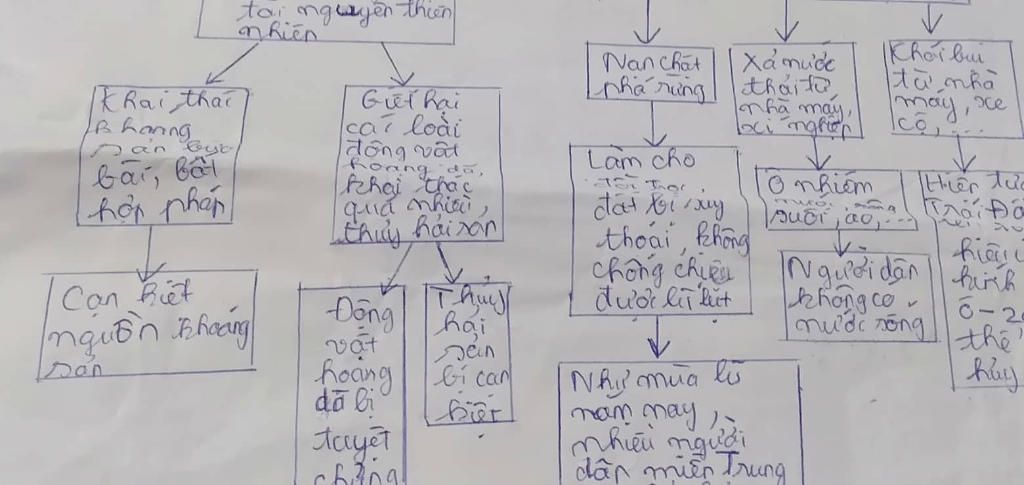 tài nguyên thiên
nhiên
Khai thác
khoáng
sản bừa
bãi, bất
hợp pháp
Cạn kiệt
nguồn khoáng
sản
Giết hại
các loài
động vật
hoang dã,
khai thác
quá nhiều,
thuỷ hải sản
Động
vật
hoang
dã bị
tuyệt
chủng
Thủy
hải
sản
bị cạn
kiệt
Nạn chặt
phá rừng
Làm cho
đất bị suy
thoái, không
chống chịu
được lũ lụt
Như mùa lũ
năm nay,
nhiều người
dân miền Trung
Xả nước
thải từ
nhà máy,
xí nghiệp
Ô nhiễm
suối, ao,...
Người dân
không có
nước sống
Khói bụi
từ nhà
máy, xe
cộ,...
Trái Đấ
hiệu
kính
ô-z
thể
hủy